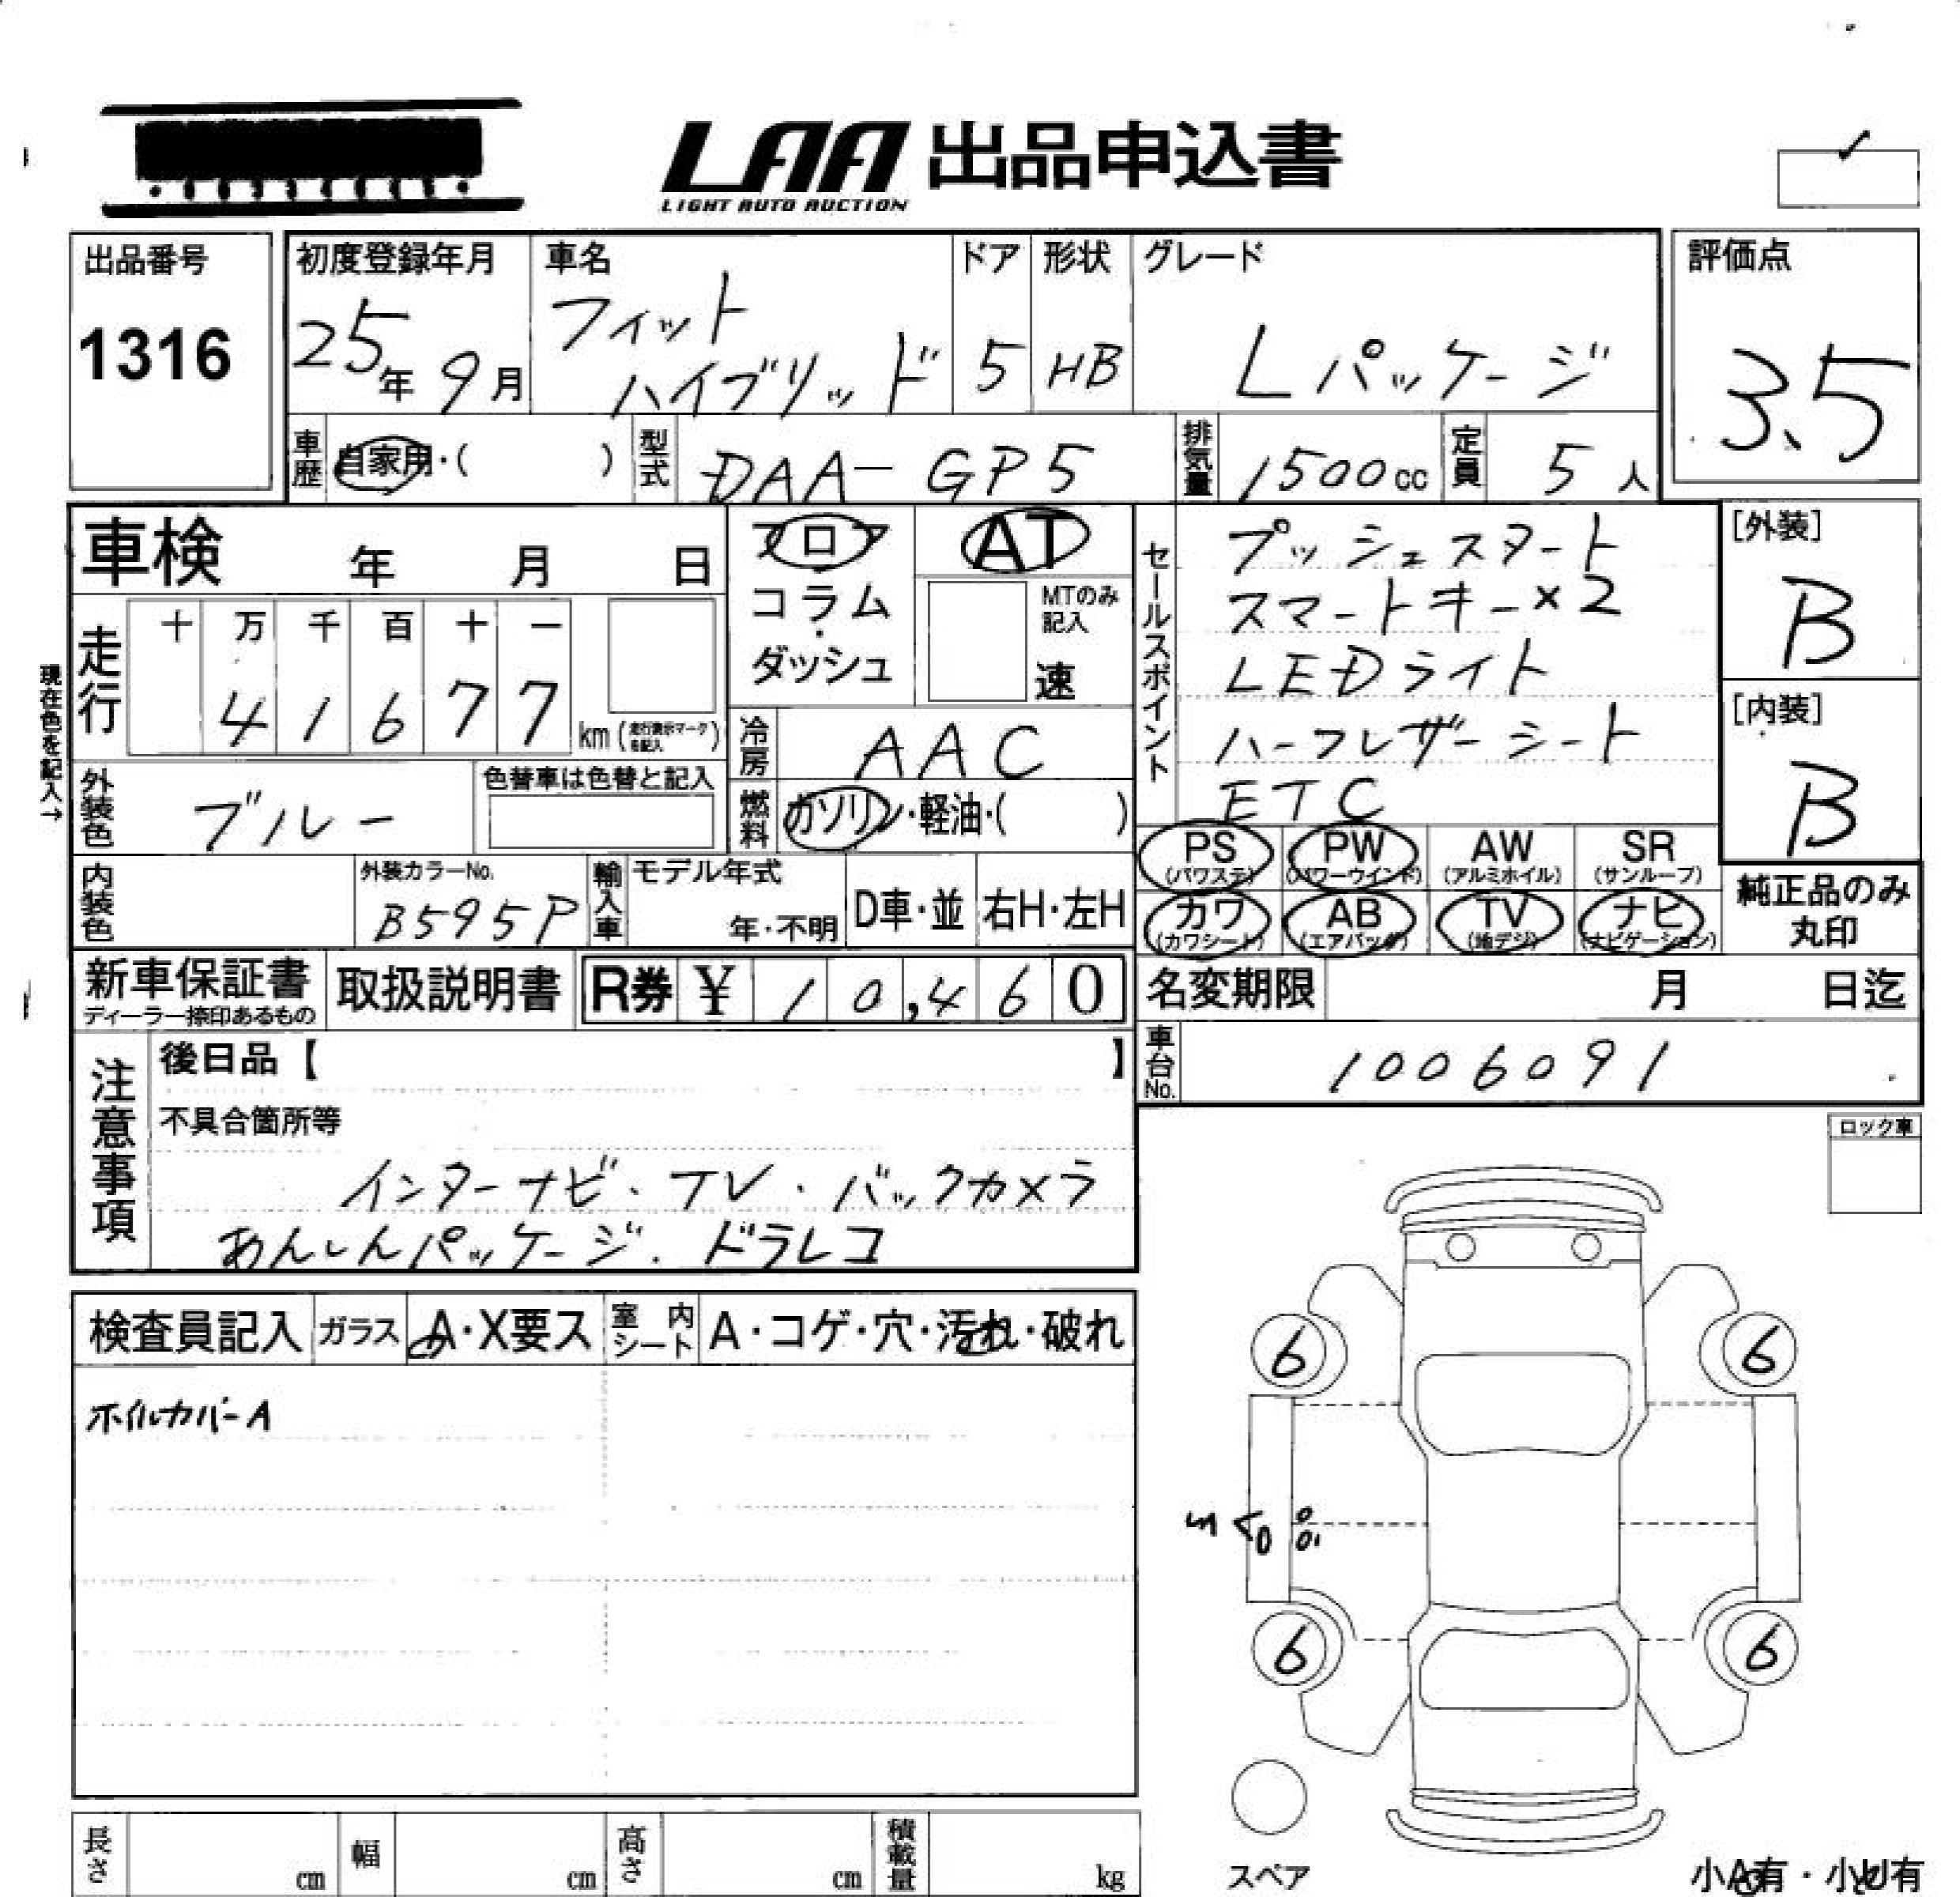 LAA 出品申込書
LIGHT AUTO AUCTION
出品番号
1316
初度登録年月
25年 9月
車名
フィット
ハイブリッド
ドア
5
形状
HB
グレード
Lパッケージ
評価点
3.5
車歴 自家用・( )
型式 DAA-GP5
排気量 1500cc
定員 5人
車検 年 月 日
フロア
コラム
・
ダッシュ
AT
MTのみ
記入
速
走行
十 万 千 百 十 一
4 1 6 7 7
km(走行表示マークを記入)
現在色を記入→
外装色 ブルー
色替車は色替と記入
冷房 AAC
燃料 ガソリン・軽油・( )
内装色
外装カラーNo.
B595P
輸入車
モデル年式
年・不明
D車・並
右H・左H
セールスポイント
プッシュスタート
スマートキー×2
LEDライト
ハーフレザーシート
ETC
[外装]
B
[内装]
B
PS (パワステ)
PW (パワーウインド)
AW (アルミホイル)
SR (サンルーフ)
カワ (カワシート)
AB (エアバッグ)
TV (地デジ)
ナビ (ナビゲーション)
純正品のみ
丸印
新車保証書
ディーラー捺印あるもの
取扱説明書
R券 ¥ 10,460
名変期限 月 日迄
車台No. 1006091
注意事項
後日品【 】
不具合箇所等
インターナビ・TV・バックカメラ
あんしんパッケージ.ドラレコ
ロック車
検査員記入
ガラス A・X要ス
室内シート A・コゲ・穴・汚れ・破れ
ホイルカバーA
6
6
6
6
スペア
長さ cm
幅 cm
高さ cm
積載量 kg
小A有・小U有